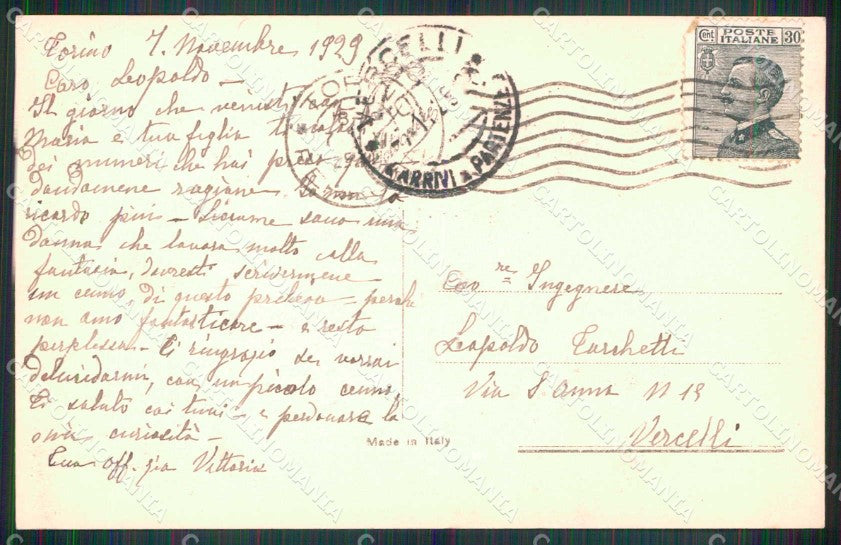 Torino 7. Novembre 1929
Caro Leopoldo –
Il giorno che venisti con
Maria e tua figlia ti
dei numeri che hai preso
dandomene ragione.
ricordo più – Siccome sono una
donna che lavora molto colla
fantasia, dovresti scrivermene
un cenno, di questo prelievo – perchè
non amo fantasticare – e resto
perplessa – Ti ringrazio se vorrai
delucidarmi, con un piccolo cenno,
Ti saluto coi tuoi – e perdonerai la
mia curiosità –
tua aff. Vittoria
VERCELLI
ARRIVI PARTENZE
POSTE
ITALIANE
Cent. 30
Cav.re Ingegnere
Leopoldo Tarchetti
Via S. Anna N 19
Vercelli
Made in Italy
CARTOLINOMANIA